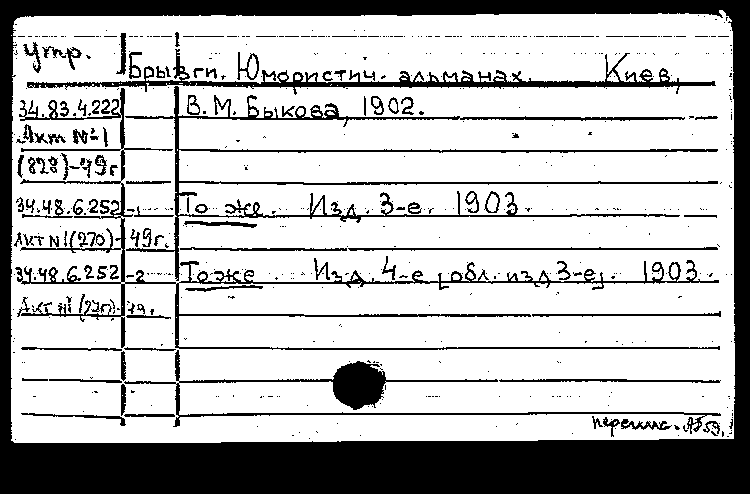 утр.
Брызги. Юмористич. альманах. Киев,
34.83.4.222 В. М. Быкова, 1902.
Акт №1
(828)-49г
34.48.6.252-1 То же. Изд. 3-е. 1903.
Акт №1(270)-49г.
34.48.6.252-2 То же. Изд. 4-е [обл. изд 3-е]. 1903.
Акт №1 (270)-49г.